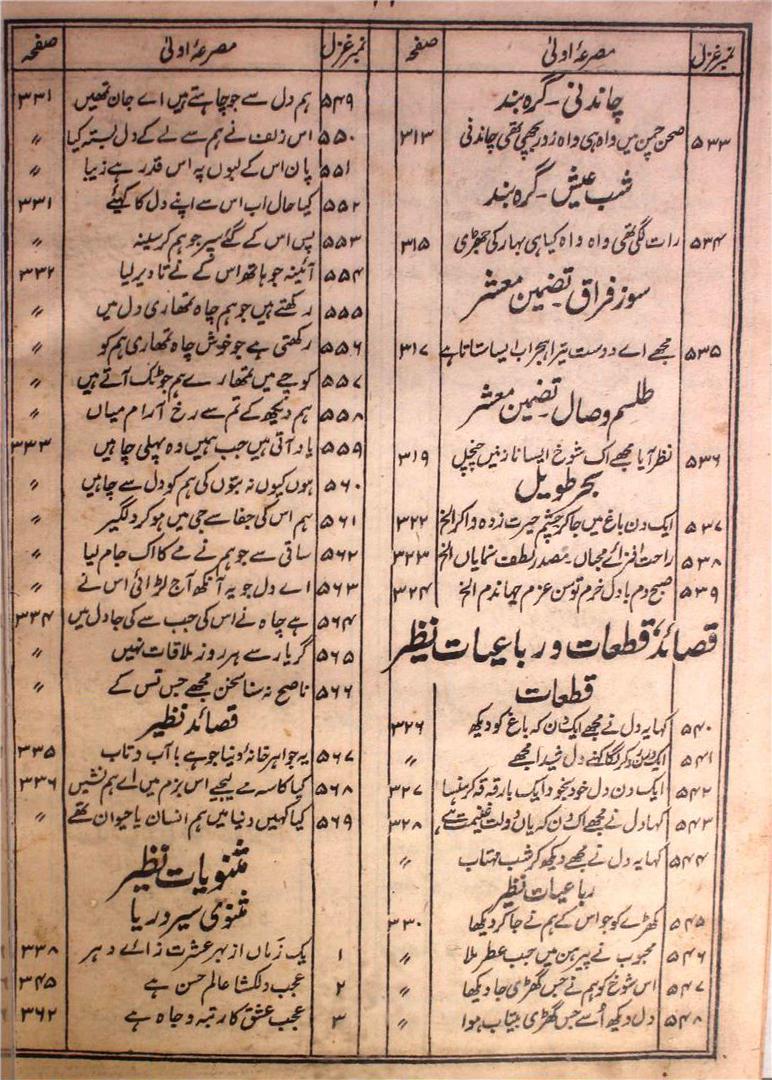 نمبر غزل مصرعۂ اولیٰ صفحہ
چاندنی ۔ گرہ بند
۵۳۳ صحن چمن میں واہ ہی واہ زور بچھی تھی چاندنی ۳۱۳
شب عیش ۔ گرہ بند
۵۳۴ رات لگی تھی واہ واہ کیا ہی بہار کی جھڑی ۳۱۵
سوز فراق ۔ تضمین معشر
۵۳۵ مجھے اے دوست تیرا ہجر اب ایسا ستاتا ہے ۳۱۷
طلسم وصال ۔ تضمین معشر
۵۳۶ نظر آیا مجھے اک شوخ ایسا نازنیں چنچل ۳۱۹
بحر طویل
۵۳۷ ایک دن باغ میں جا کر چشم حیرت زدہ وا کر الخ ۳۲۲
۵۳۸ راحت افزائے محباں، مصدر لطف نمایاں الخ ۳۲۳
۵۳۹ صبح دم بادل خرم توسن عزم جہاندم الخ ۳۲۴
قصائد، قطعات و رباعیات نظیر
قطعات
۵۴۰ کہا یہ دل نے مجھے ایک دن کہ باغ کو دیکھ ۳۲۶
۵۴۱ ایک دن ذکر لگا کہنے دل شیدا مجھے 〃
۵۴۲ ایک دن دل خود بخود ایک بار قہ قہ کر ہنسا ۳۲۷
۵۴۳ کہا دل نے مجھے اک دن کہ یاں دولت غنیمت ہے ۳۲۸
۵۴۴ کہا یہ دل نے مجھے دیکھ کر شب مہتاب 〃
رباعیات نظیر
۵۴۵ مکھڑے کو جو اس کے ہم نے جا کر دیکھا ۳۳۰
۵۴۶ محبوب نے پیرہن میں جب عطر ملا 〃
۵۴۷ اس شوخ کو ہم نے جس گھڑی جا دیکھا 〃
۵۴۸ دل دیکھ اُسے جس گھڑی بیتاب ہوا 〃
نمبر غزل مصرعۂ اولیٰ صفحہ
۵۴۹ ہم دل سے جو چاہتے ہیں اے جان تمھیں ۳۳۱
۵۵۰ اس زلف نے ہم سے لے کے دل بستہ کیا 〃
۵۵۱ پان اس کے لبوں پہ اس قدر ہے زیبا
۵۵۲ کیا حال اب اس سے اپنے دل کا کہئے ۳۳۱
۵۵۳ پس اس کے گئے سپر جو ہم کر سینہ 〃
۵۵۴ آئینہ جو ہاتھ اس کے نے تا دیر لیا ۳۳۲
۵۵۵ رکھتے ہیں جو ہم چاہ تمھاری دل میں 〃
۵۵۶ رکھتی ہے جو خوش چاہ تمھاری ہم کو 〃
۵۵۷ کوچے میں تمھارے ہم جو ٹک آتے ہیں 〃
۵۵۸ ہم دیکھ کے تم سے رخ آرام میاں 〃
۵۵۹ یاد آتی ہیں جب ہمیں وہ پہلی چاہیں ۳۳۳
۵۶۰ ہوں کیوں نہ بتوں کی ہم کو دل سے چاہیں 〃
۵۶۱ ہم اس کی جفا سے جی میں ہو کر دلگیر 〃
۵۶۲ ساقی سے جو ہم نے مے کا اک جام لیا 〃
۵۶۳ اے دل جو یہ آنکھ آج لڑائی اس نے 〃
۵۶۴ ہے چاہ نے اس کی جب سے کی جا دل میں ۳۳۴
۵۶۵ گر یار سے ہر روز ملاقات نہیں 〃
۵۶۶ ناصح نہ سنا سخن مجھے جس تس کے 〃
قصائد نظیر
۵۶۷ یہ جواہر خانۂ دنیا جو ہے با آب و تاب ۳۳۵
۵۶۸ کیا کاسۂ مے لیجیے اس بزم میں اے ہم نشیں ۳۳۶
۵۶۹ کیا کہیں دنیا میں ہم انسان یا حیوان تھے 〃
مثنویات نظیر
مثنوی سیر دریا
۱ یک زماں از بہر عشرت زائے دہر ۳۳۸
۲ عجب دلکشا عالم حسن ہے ۳۴۵
۳ عجب عشق کا رتبہ و جاہ ہے ۳۶۲